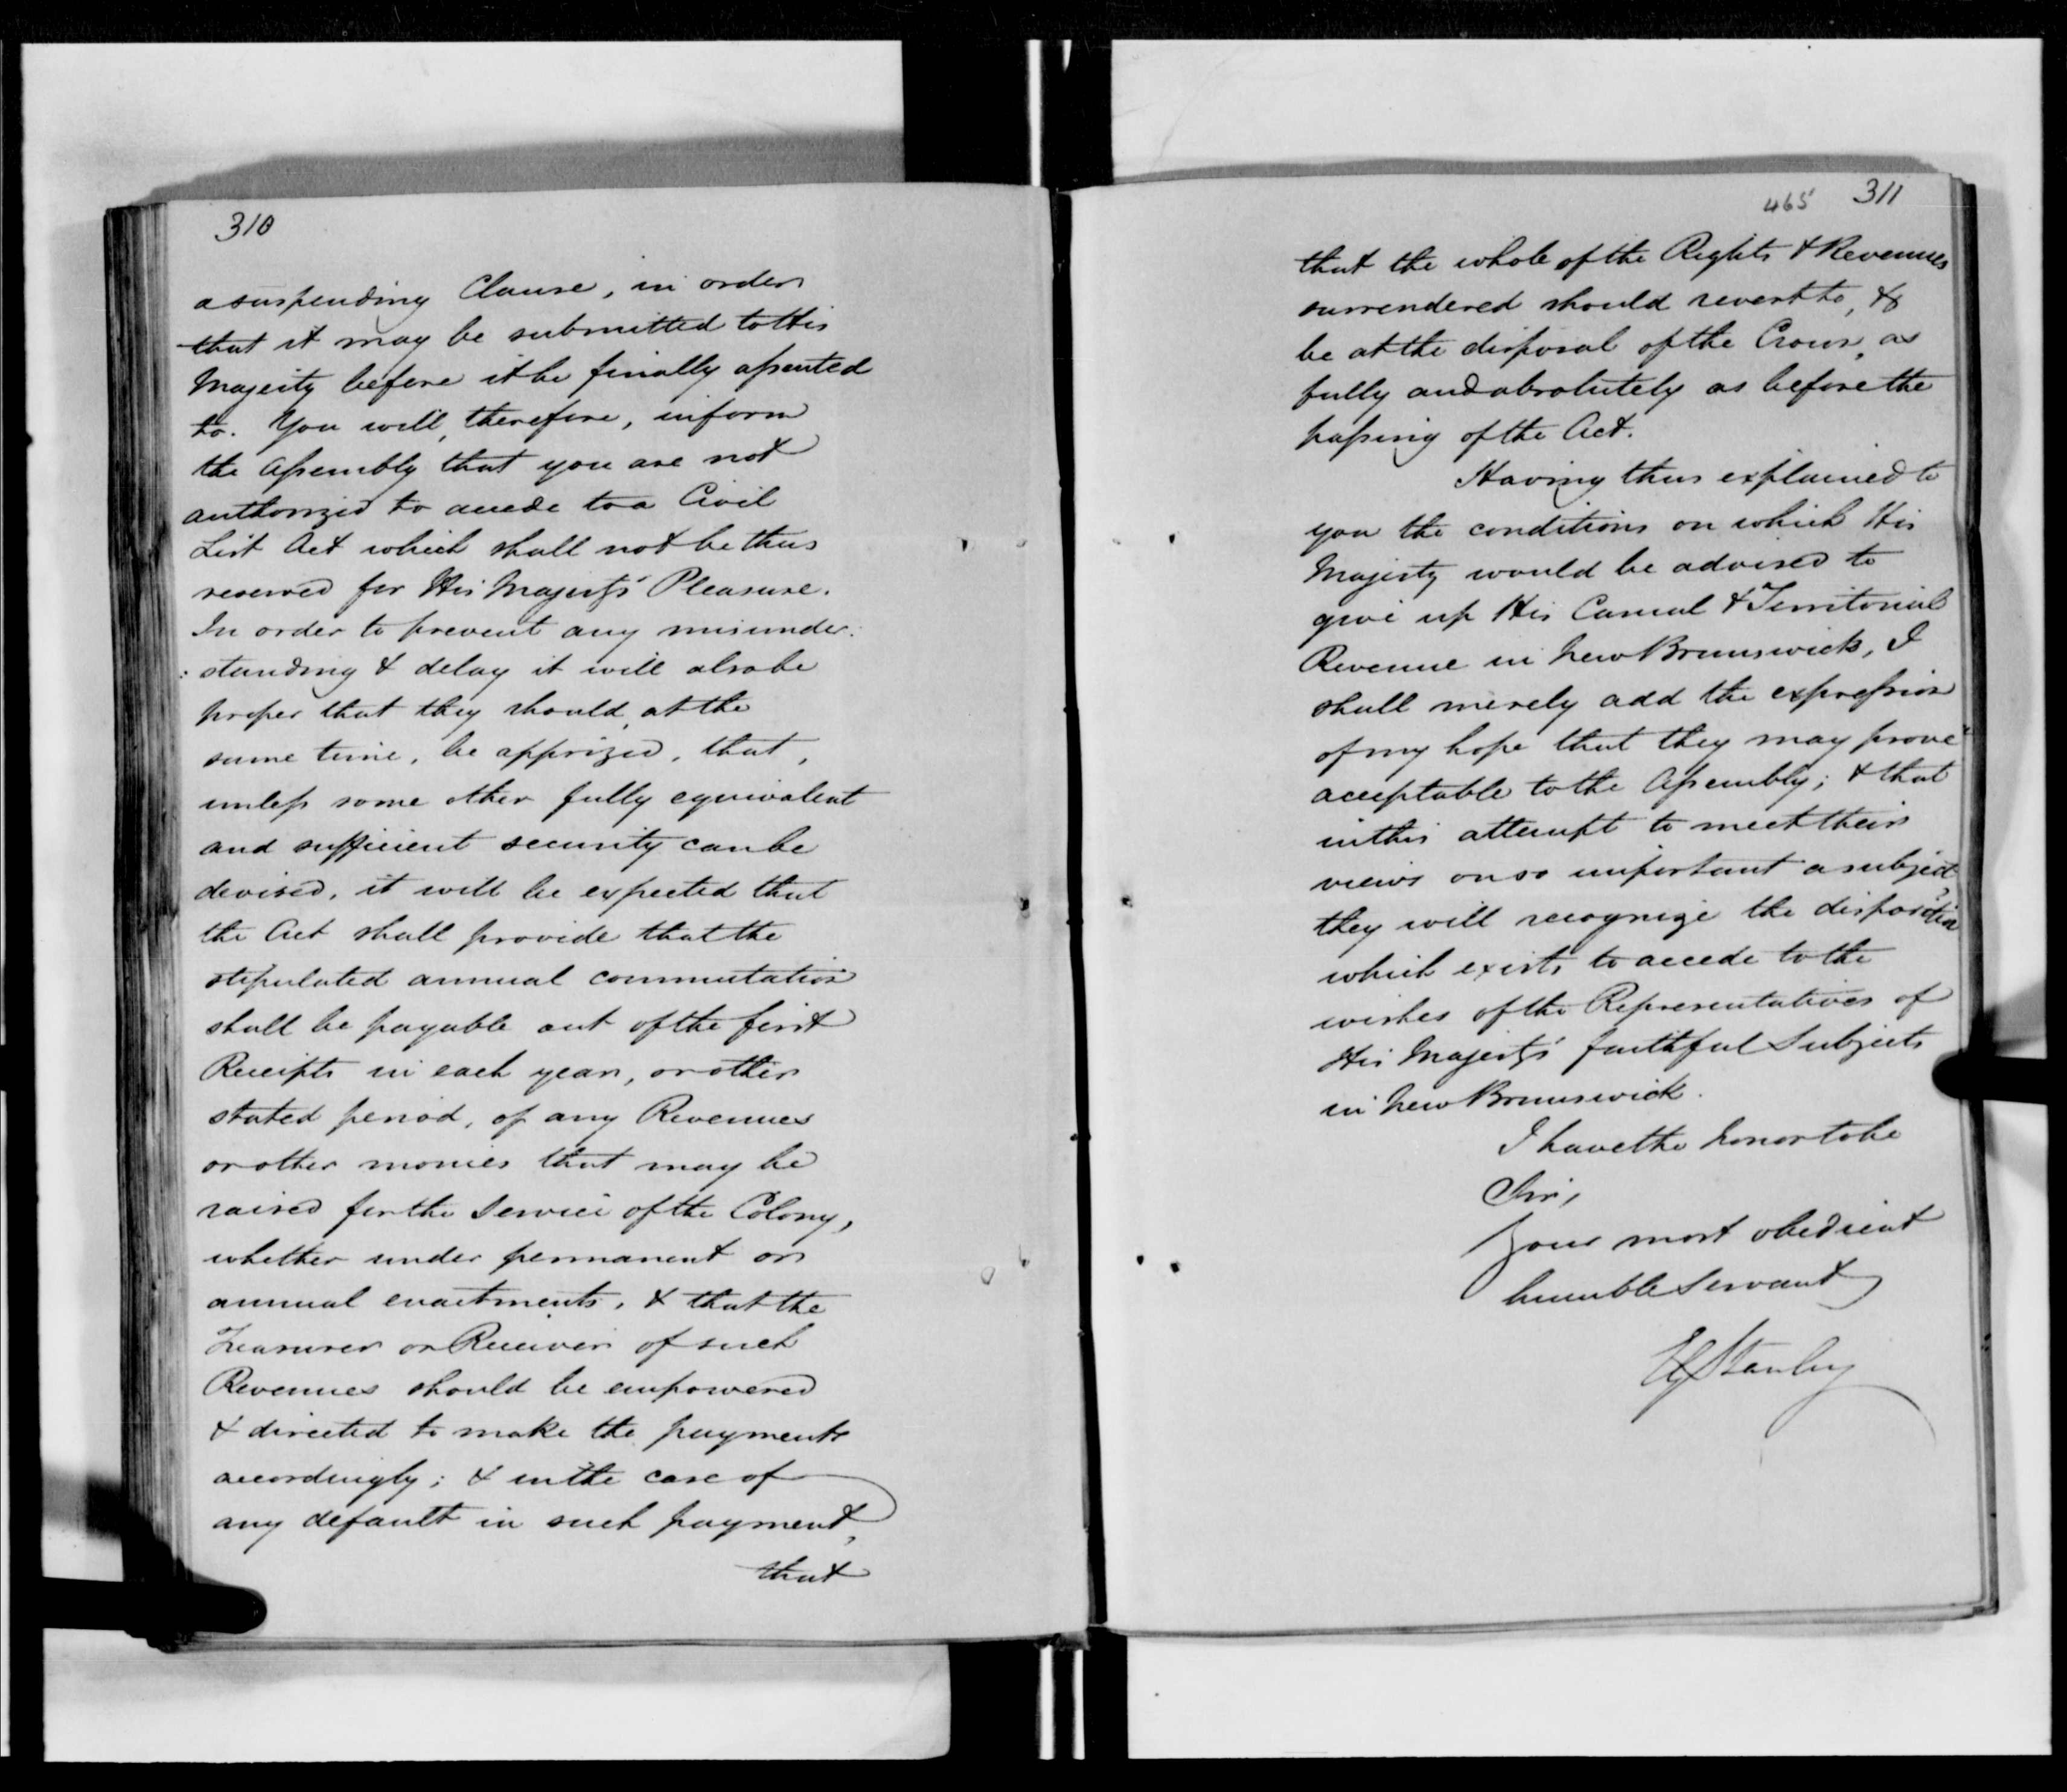 310
a suspending Clause, in order
that it may be submitted to His
Majesty before it be finally assented
to. You will, therefore, inform
the Assembly that you are not
authorized to accede to a Civil
List Act which shall not be thus
reserved for His Majesty's Pleasure.
In order to prevent any misunder:
:standing & delay it will also be
proper that they should, at the
same time, be apprized, that,
unless some other fully equivalent
and sufficient security can be
devised, it will be expected that
the Act shall provide that the
stipulated annual commutation
shall be payable out of the first
Receipts in each year, or other
stated period, of any Revenues
or other monies that may be
raised for the Service of the Colony,
whether under permanent or
annual enactments, & that the
Treasurer or Receiver of such
Revenues should be empowered
& directed to make the payments
accordingly; & in the case of
any default in such payment,
that
465 311
that the whole of the Rights & Revenues
surrendered should revert to, &
be at the disposal of the Crown, as
fully and absolutely as before the
passing of the Act.
Having thus explained to
you the conditions on which His
Majesty would be advised to
give up His Casual & Territorial
Revenue in New Brunswick, I
shall merely add the expression
of my hope that they may prove
acceptable to the Assembly; & that
in this attempt to meet their
views on so important a subject,
they will recognize the disposition
which exists to accede to the
wishes of the Representatives of
His Majesty's faithful Subjects
in New Brunswick.
I have the honor to be
Sir,
Your most obedient
humble Servant
EG Stanley